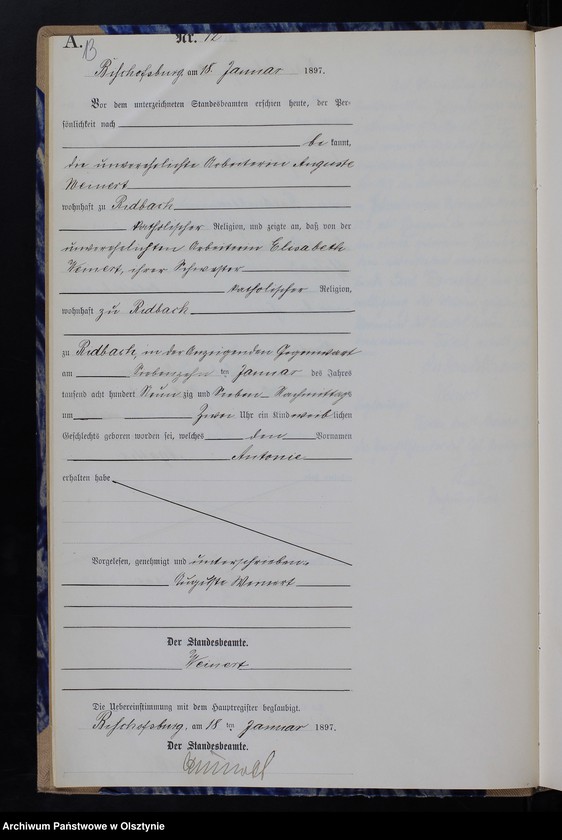 A. Nr. 12
13
Bischofsburg, am 18. Januar 1897.
Vor dem unterzeichneten Standesbeamten erschien heute, der Per-
sönlichkeit nach
be kannt,
die unverehelichte Arbeiterin Auguste
Weinert
wohnhaft zu Ridbach
katholischer Religion, und zeigte an, daß von der
unverehelichten Arbeiterin Elisabeth
Weinert, ihrer Schwester
katholischer Religion,
wohnhaft zu Ridbach
zu Ridbach, in der Anzeigenden Gegenwart
am Siebenzehn ten Januar des Jahres
tausend acht hundert Neun zig und Sieben Nachmittags
um Zwei Uhr ein Kind weib lichen
Geschlechts geboren worden sei, welches den Vornamen
Antonie
erhalten habe
Vorgelesen, genehmigt und unterschrieben.
Auguste Weinert
Der Standesbeamte.
Weinert
Die Uebereinstimmung mit dem Hauptregister beglaubigt.
Bischofsburg, am 18 ten Januar 1897.
Der Standesbeamte.
Archiwum Państwowe w Olsztynie